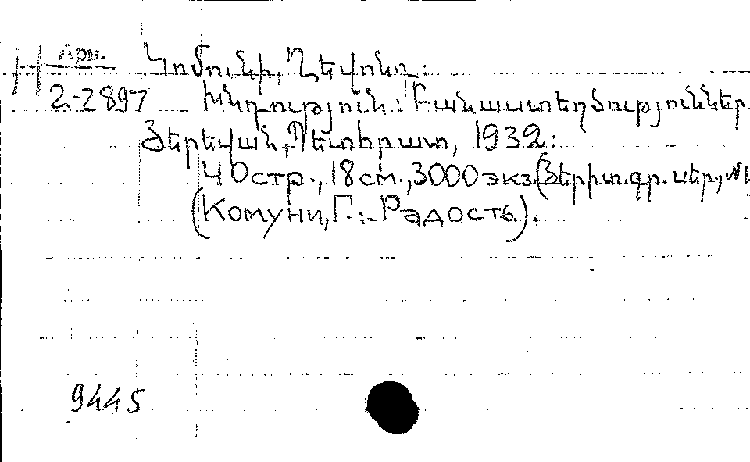 Арм.
Կոմունի, Ղևոնդ:
2-2897 Խնդություն: Բանաստեղծություններ.
Յերեվան, Պետհրատ, 1932:
40 стр., 18 см., 3000 экз. (Յերիտ. գր. սեր., №1
(Комуни, Г.:- Радость.).
9445